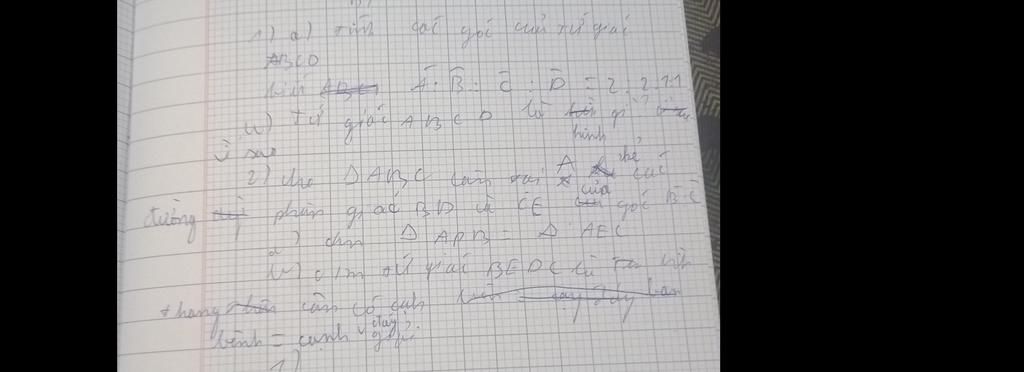 1) a) Tính các góc của tứ giác
ABCD
biết Â : B̂ : Ĉ : D̂ = 2 : 2 : 1 : 1
b) Tứ giác ABCD là hình gì?
vì sao
2) cho ΔABC cân tại A kẻ các
đường phân giác BD và CE của góc B̂ Ĉ
a) cm ΔADB = ΔAEC
b) c/m tứ giác BEDC là hình
thang cân có cạnh
bên = cạnh đáy
1)